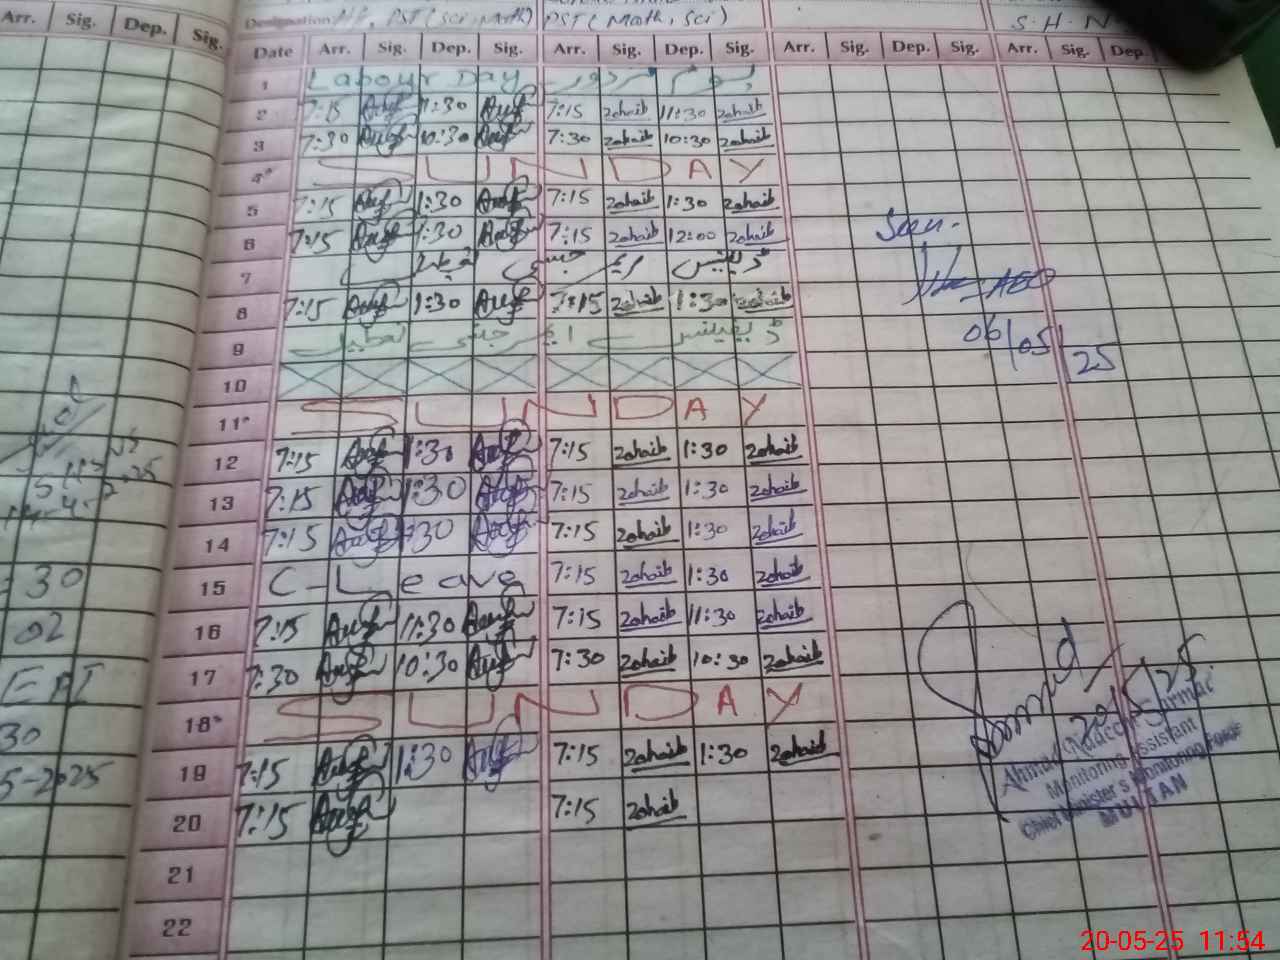 Arr. Sig. Dep. Sig.
Designation HT, PST (Sci, Math) PST (Math, Sci) S.H.N
Date Arr. Sig. Dep. Sig. Arr. Sig. Dep. Sig. Arr. Sig. Dep. Sig. Arr. Sig. Dep
1 Labour Day یوم مزدور
2 7:15 1:30 7:15 Zohaib 11:30 Zohaib
3 7:30 10:30 7:30 Zohaib 10:30 Zohaib
4 SUNDAY
5 7:15 1:30 7:15 Zohaib 1:30 Zohaib
6 7:15 1:30 7:15 Zohaib 12:00 Zohaib
Seen.
7 ڈیفینس ایمرجنسی تعطیل
AEO
8 7:15 1:30 7:15 Zohaib 1:30 Zohaib
06/05/25
9 ڈیفینس ایمرجنسی تعطیل
10
11 SUNDAY
12 7:15 1:30 7:15 Zohaib 1:30 Zohaib
13 7:15 1:30 7:15 Zohaib 1:30 Zohaib
14 7:15 1:30 7:15 Zohaib 1:30 Zohaib
30
15 C-Leave 7:15 Zohaib 1:30 Zohaib
02
16 7:15 11:30 7:15 Zohaib 11:30 Zohaib
17 7:30 10:30 7:30 Zohaib 10:30 Zohaib
30
18 SUNDAY
5-2025
19 7:15 1:30 7:15 Zohaib 1:30 Zohaib
20 7:15 7:15 Zohaib
Monitoring Assistant
Chief Minister's Monitoring Force
MULTAN
21
22
20-05-25 11:54